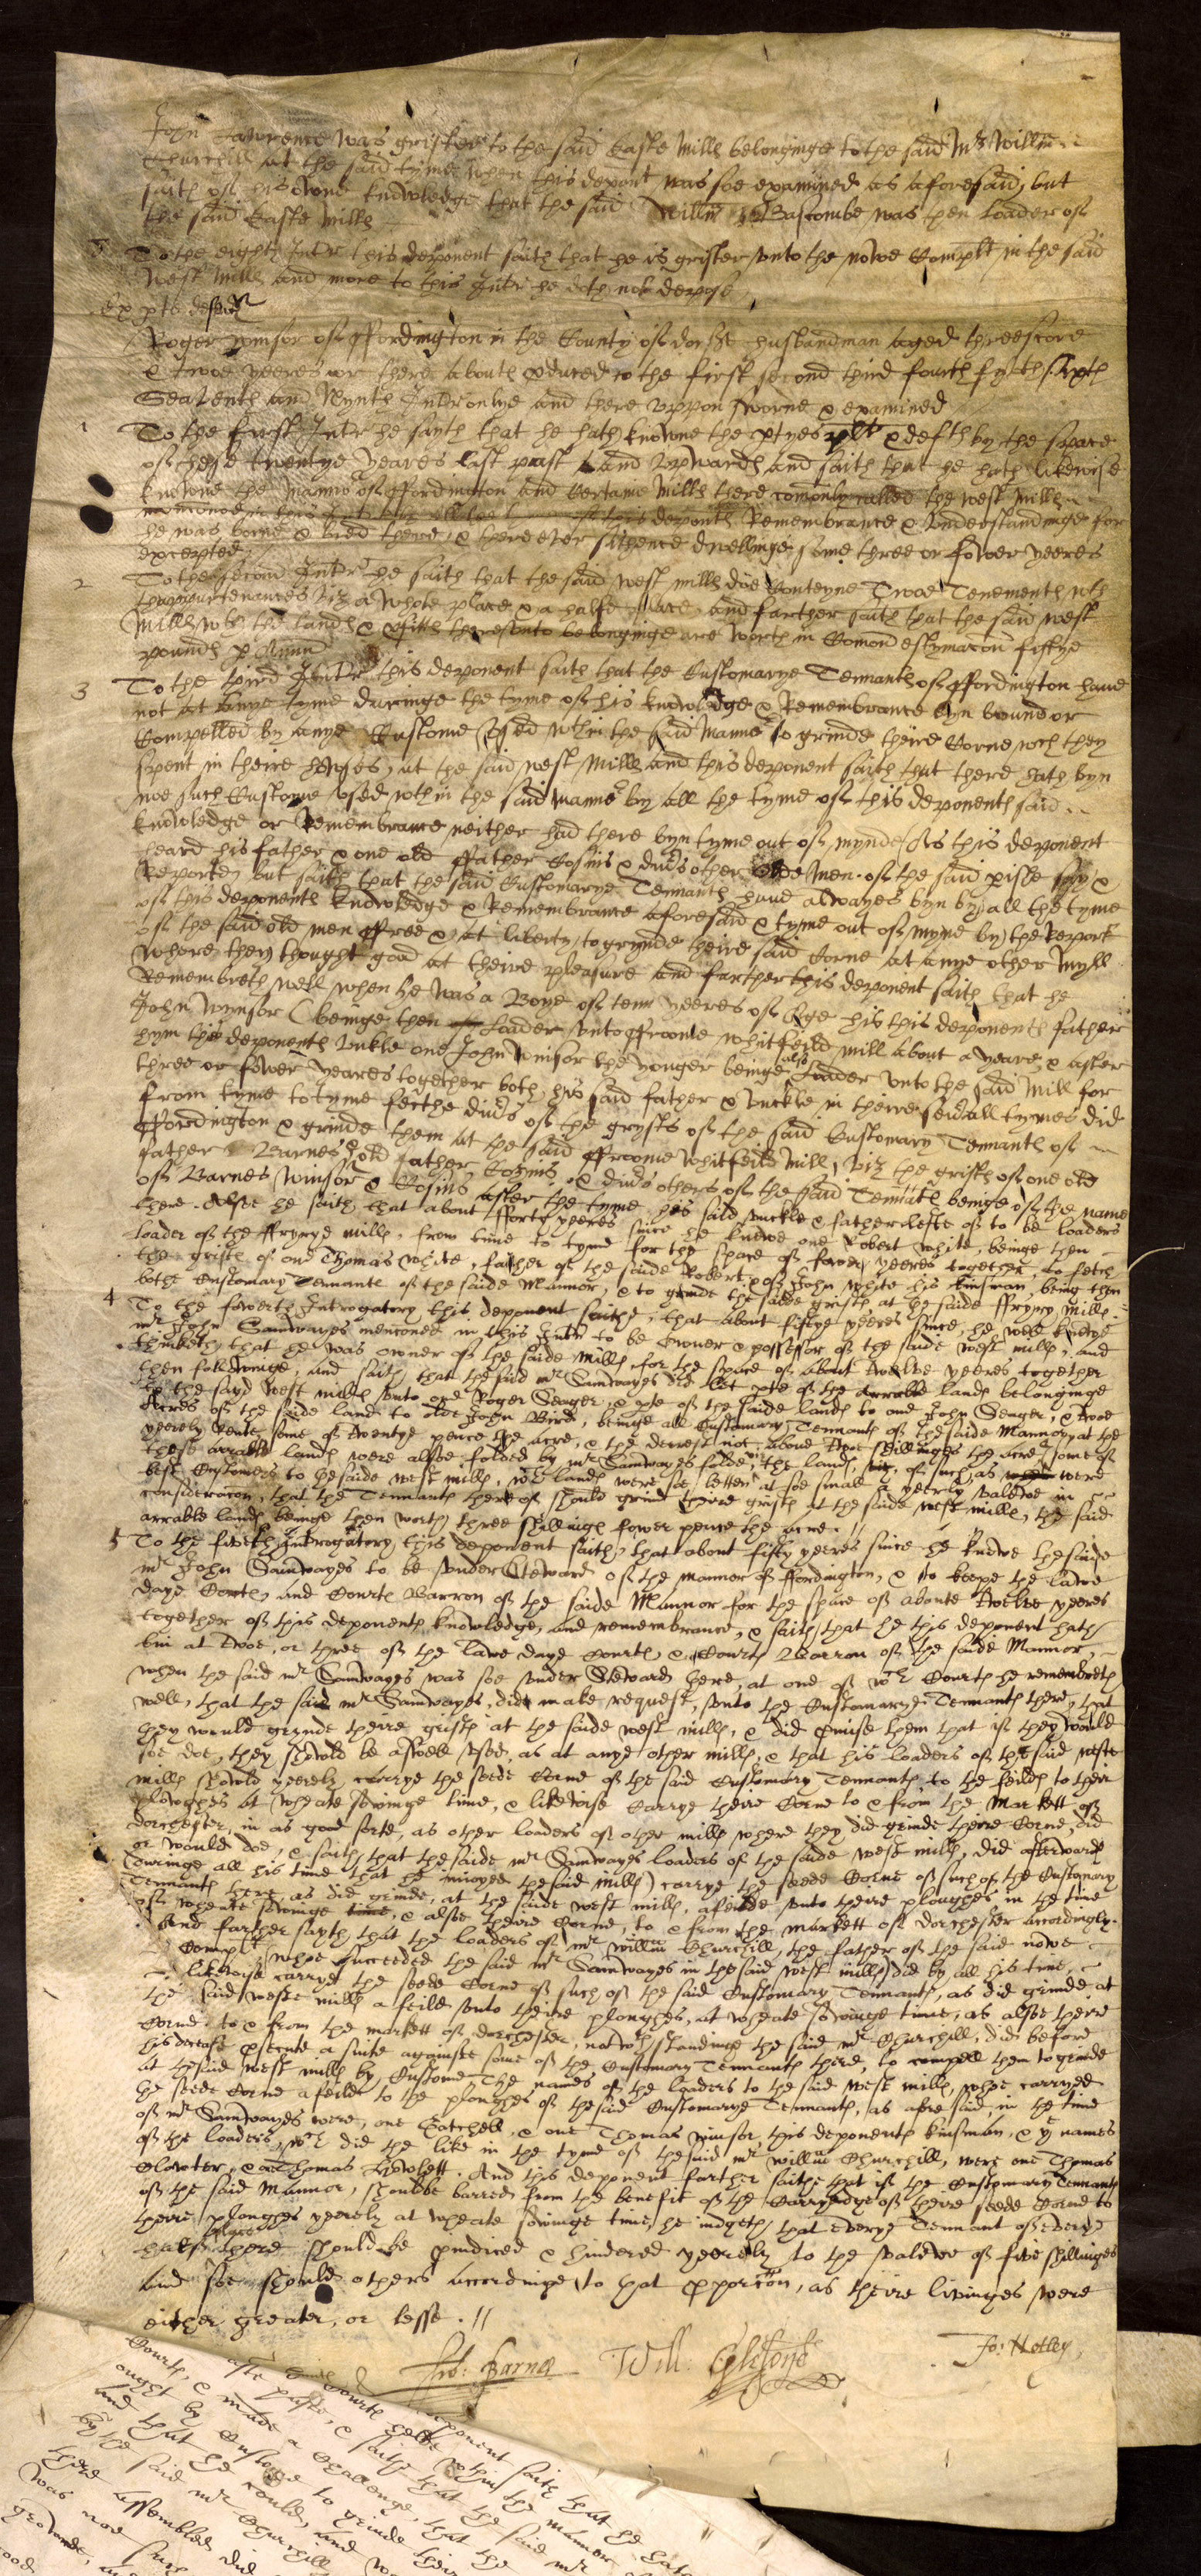 John Lawrence was grister to the said Easte Mills belonginge to the said Mr Willm
Churchill at the said tyme when this depont was soe examined as aforesaid, but
saith of his owne knowledge that the said Willm Bascombe was then Loader of
the said Easte Mills
8 To the eighth Intr this deponent saith that he is grister unto the nowe Complt in the said
West Mills and more to this Intr he doth not depose
Ex pte
Roger Winsor of ffordington in the County of dorst husbandman aged threescore
& twoe yeeres or there aboutes produced to the first second third fourth fyfth sixth
Seaventh and Nynth Intr onlye and there uppon sworne & examined
1 To the first Intr he sayth that he hath knowne the ptyes plt & defts by the space
of these twentye yeares last past and upwards and saith that he hath likewise
knowne the Mannor of ffordington and Certaine Mills there comonly called the West Mills
this deponts Remembrance & Understandinge for
he was borne & bred there & there ever sithence dwellinge some three or fower yeeres
excepted
2 To the second Intr he saith that the said West Mills doe Conteyne Twoe Tenements wth
thappurtenances viz a whole place & a halfe place and farther saith that the said West
Mills wth the lands & thereunto belonginge are worth in Comon estymacon fiftye
pounds p Annu
3 To the third Intr this deponent saith that the Customarye Tennants of ffordington have
not at anye tyme duringe the tyme of his knowledge & Remembrance byn bound or
Compelled by anye Custome Used wthin the said Mannor to grinde theire Corne wch they
spent in theire howses, at the said West Mills and this deponent saith that there hath byn
noe such Custome used wthin the said Mannor by all the tyme of this deponents said
knowledge or Remembrance neither had there byn tyme out of mynde As this deponent
heard his father & one old ffather Cosins & divds other Olde Men of the said pishe say &
Reporte, but saith that the said Customarye Tennants have alwayes byn by all the tyme
of this deponents knowledge & Remembrance aforesaid & tyme out of mynd by the Report
of the said old men ffree & at liberty to grynde theire said Corne at anye other Myll
where they thought good at theire pleasure and farther this deponent saith that he
Remembreth well when he was a Boye of tenn yeeres of Age his this deponents father
John Wynsor (beinge then Loader unto ffroome Whitfeild Mill about a yeare, & after
hym this deponents Unkle one John Winsor the yonger beinge also Loader unto the said Mill for
three or fower yeares together both his said father & Unckle in theire severall tymes did
from tyme to tyme fetche divds of the grysts of the said Customary Tennants of
ffordington & grinde them at the said ffroome Whitfeild Mill, viz the grists of one old
father Barnes, old father Cozins, & divds others of the said Tennts beinge of the name
of Barnes Winsor & Cosins after the tyme his said unckle & father lefte of to be loaders
there. Alsoe he saith that about fforty yeeres since he knewe one Robert White, beinge then
loader of the ffryery mills, from time to tyme for the space of fower yeeres together, to fetch
the grists of one Thomas White, father of the saide Robert, & of John White his kinsman, being then
bothe Customary Tennants of the saide Mannor, & to grinde the saide grists, at the saide ffryery Mills
4 To the fowerth Introgatory this deponent saithe, that about fiftye yeeres since, he well knewe
mr John Samwayes mencioned in this Intr to be owner & possessor of the saide west mills, and
thinketh, that he was owner of the saide mills, for the space of about twelve yeeres together
then followinge, and saith, that the said mr Samwayes did let pte of the arrable lands belonginge
to the sayd West mills unto one Roger Seager, & pte of the saide lands to one John Seager, & twoe
Acres of the saide lands to olde John Bird, beinge all Customary Tennants of the saide Mannor, at the
yeerely Rente, some of twentye pence the acre, & the deerest not above twoe shillinges the acre, some of
these arrable lands were alsoe folded by mr Samwayes folde, the lands, viz, of such, as were
best Customers to the saide west mills, wch lands were soe letten at soe small a yeerely valewe in
consideracon, that the Tennants thereof should grind theire grists at the saide west mills, the said
arrable lands beinge then worth three shillings fower pence the acre. //
5 To the fiveth Introgatory this deponent saith, that about fifty yeeres since he knewe the saide
mr John Samwayes to be under Steward of the mannor of ffordington, & to keepe the Lawe
daye Courts, and Courts Barron of the saide Mannor for the space of aboute twelve yeeres
together of this deponents knowledge, and remembrance, & saith, that he this deponent hath
bin at twoe, or three of the lawe daye Courts, & Courts Barron of the saide Mannor,
when the said mr Samwayes was soe under Steward there, at one of wch Courts he remembreth
well, that the said mr Samwayes, did make request, unto the Customarye Tennants there, that
they would grynde theire grists at the saide west mills, & did pmise them that if they would
soe doe, they should be aswell used, as at anye other mills, & that his loaders of the said weste
mills should yeerely carrye the seede Corne of the said Customary Tennants, to the feilds to their
ploughes at wheate sowinge time, & likewise Carrye theire Corne to & from the Markett of
dorchester, in as good sorte, as other loaders of other mills where they did grinde theire Corne, did
or would doe, & saith, that the saide mr Samwayes loaders of the saide west mills, did afterwards
(duringe all his time that he inioyed the said mills) carrye the seede Corne of such of the Customary
Tennants there, as did grinde, at the saide west mills, afeilde unto theire ploughes in the time
of wheate sowinge, & alsoe theire Corne, to & from the markett of dorchester accordingly.
And farther sayth, that the loaders of mr Willm Churchill, the father of the said nowe
Complt, whoe succeeded the said mr Samwayes in the said west mills, did by all his time,
likewise carrye the seede Corne of such of the said Customary Tennants, as did grinde at
the said weste mills a feild unto theire ploughes, at wheate sowinge time, as alsoe theire
Corne to & from the markett of dorchester, notwthstandinge the said mr Churchill, did before
his decease psecute a suite againste some of the Customary Tennants there, to compell them to grinde
at the said west mills by Custome. The names of the loaders to the said west mills, whoe carryed
the seede Corne a feilde to the ploughes of the said Customarye Tennants, as afore said, in the time
of mr Samwayes were, one Satchell, & one Thomas Winsor, this deponents kinsman, & ye names
of the loaders, wch did the like in the tyme of the said mr Willm Churchill, were one Thomas
Clowter, & one Thomas Howlett. And this deponent farther saithe that if the Customary Tennants
of the said Mannor, shoulde barred from the benefit of the Carryedge of theire seede Corne to
theire ploughes yeerely at wheate sowinge time, he iudgeth, that everye Tennant of everye
halfe place there should be preiudiced & hindered yeerely to the valewe of five shillinges
and soe should others accordinge to that pporcon, as theire livinges were
either greater, or lesse. //
Tho: Barnes Will: Jo: Notley
deponent saith that he hath
Courts helde wthin the mannor
paste, & saith that the said mr
Courts, & made a Challenge, that the
ought by Custome to grinde their
and that he could, and
by the said mr Churchill
there assembled did
was noe such